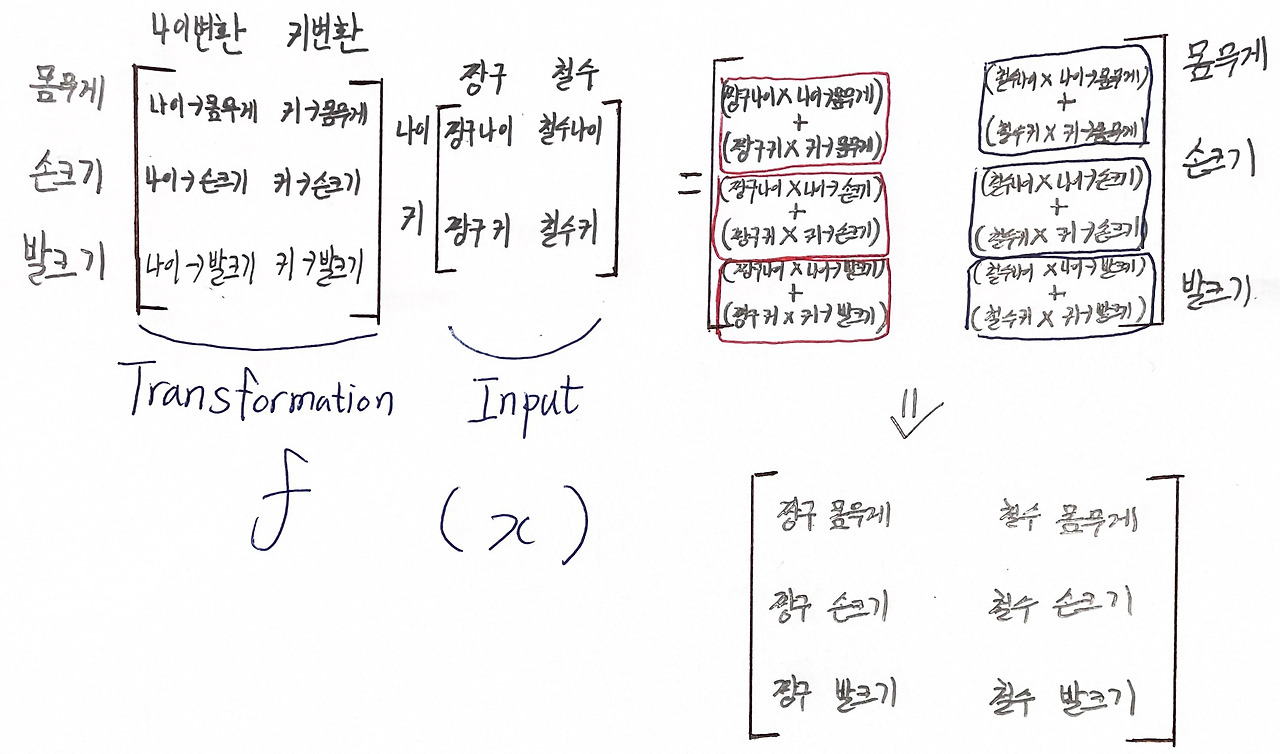 나이변환 키변환
몸무게 나이→몸무게 키→몸무게
손크기 나이→손크기 키→손크기
발크기 나이→발크기 키→발크기
짱구 철수
나이 짱구나이 철수나이
키 짱구키 철수키
=
(짱구나이 × 나이→몸무게)
+
(짱구키 × 키→몸무게)
(짱구나이 × 나이→손크기)
+
(짱구키 × 키→손크기)
(짱구나이 × 나이→발크기)
+
(짱구키 × 키→발크기)
(철수나이 × 나이→몸무게)
+
(철수키 × 키→몸무게)
(철수나이 × 나이→손크기)
+
(철수키 × 키→손크기)
(철수나이 × 나이→발크기)
+
(철수키 × 키→발크기)
몸무게
손크기
발크기
Transformation Input
f (x)
짱구 몸무게 철수 몸무게
짱구 손크기 철수 손크기
짱구 발크기 철수 발크기